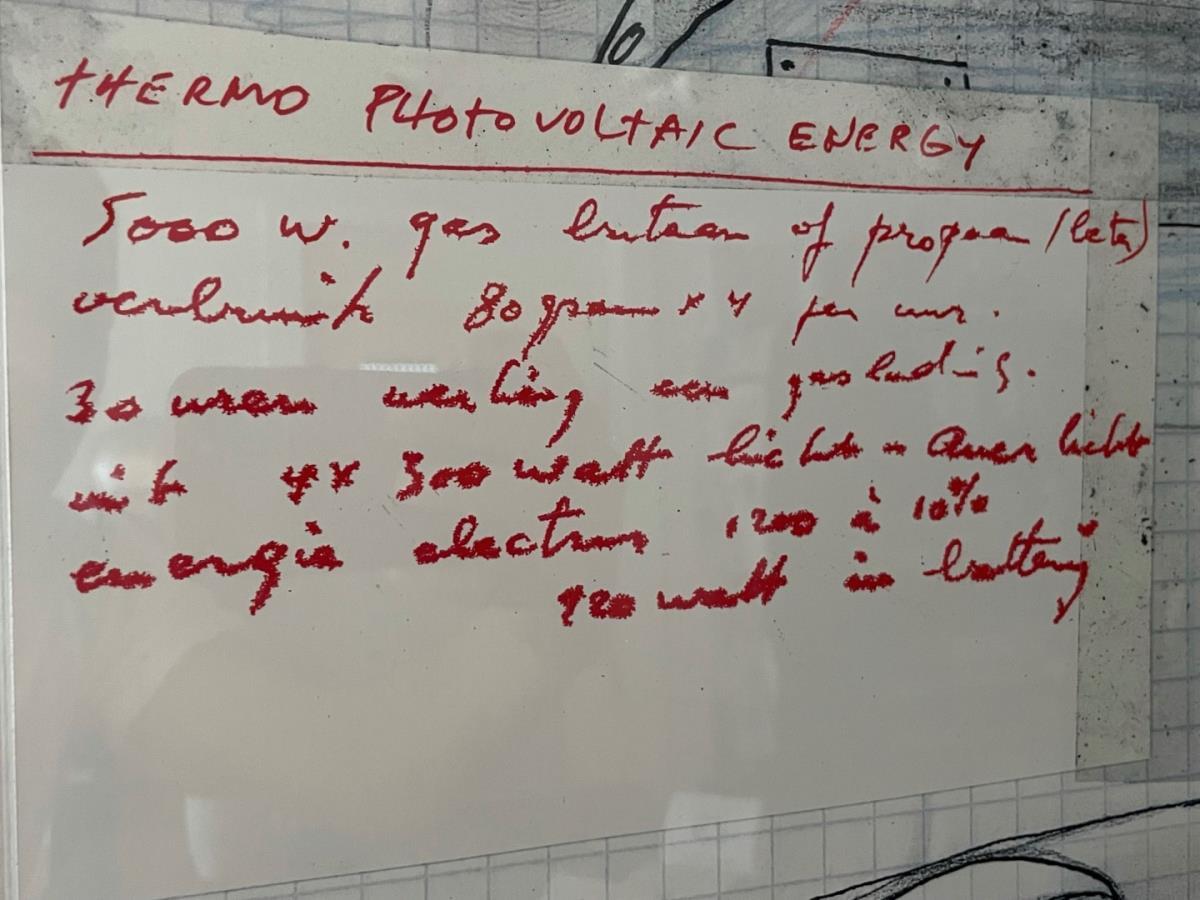 THERMO PHOTOVOLTAIC ENERGY
5000 W. gas butaan of propaan /beta)
verbruik 80 gram x 4 per uur.
30 uren werking een gaslading.
uit 4x 300 watt licht = Auer licht
energie electrum 1200 à 10%
120 watt in battery